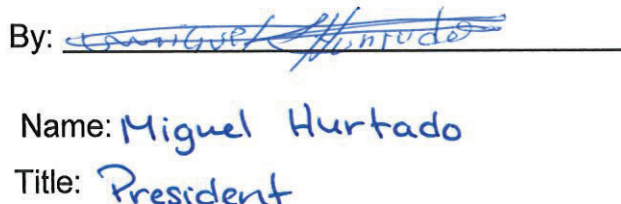 By: Miguel Hurtado
Name: Miguel Hurtado
Title: President